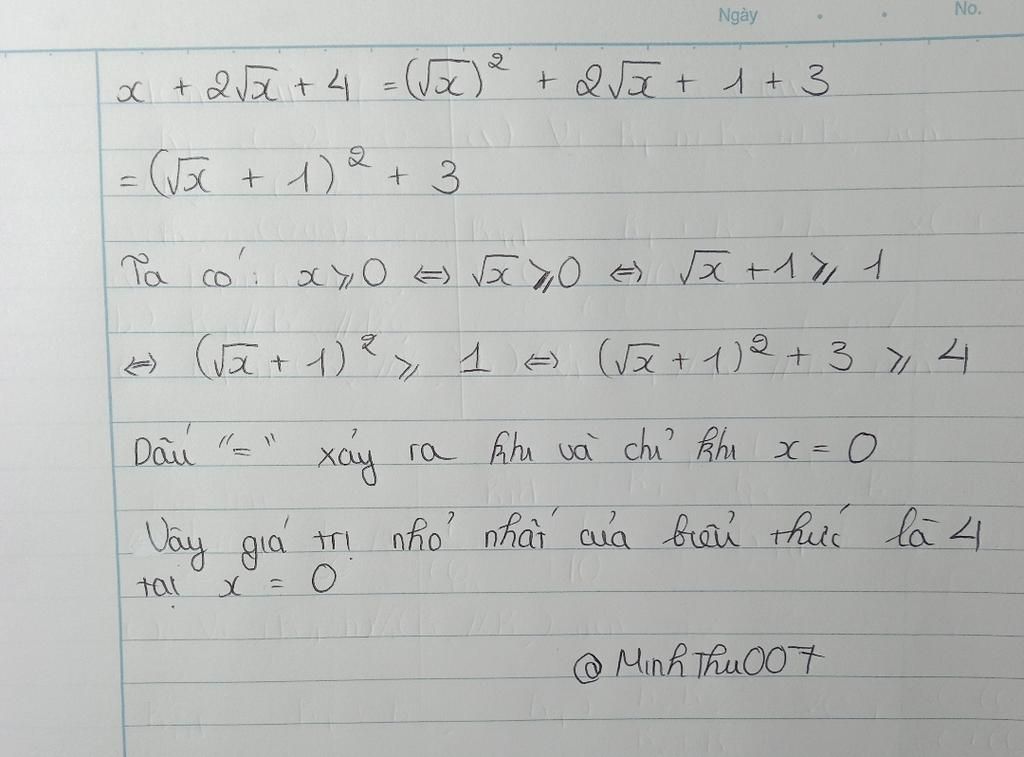 Ngày No.
x + 2√x + 4 = (√x)² + 2√x + 1 + 3
= (√x + 1)² + 3
Ta có: x ⩾ 0 ⇔ √x ⩾ 0 ⇔ √x + 1 ⩾ 1
⇔ (√x + 1)² ⩾ 1 ⇔ (√x + 1)² + 3 ⩾ 4
Dấu "=" xảy ra khi và chỉ khi x = 0
Vậy giá trị nhỏ nhất của biểu thức là 4
tại x = 0
@MinhThu007